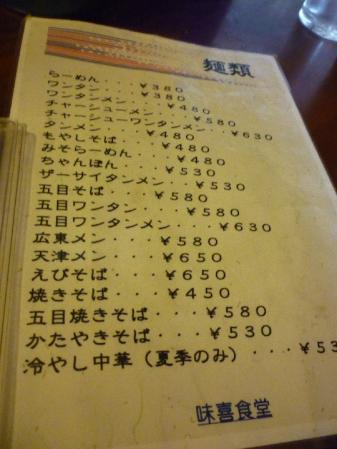 麺類
らーめん・・・￥380
ワンタン・・・￥380
ワンタンメン・・・￥480
チャーシューメン・・・￥580
チャーシューワンタンメン・・・￥630
タンメン・・・￥480
もやしそば・・・￥480
みそらーめん・・・￥480
ちゃんぽん・・・￥530
ザーサイタンメン・・・￥530
五目そば・・・￥580
五目ワンタン・・・￥580
五目ワンタンメン・・・￥630
広東メン・・・￥580
天津メン・・・￥650
えびそば・・・￥650
焼きそば・・・￥450
五目焼きそば・・・￥580
かたやきそば・・・￥530
冷やし中華（夏季のみ）・・・￥53
味喜食堂